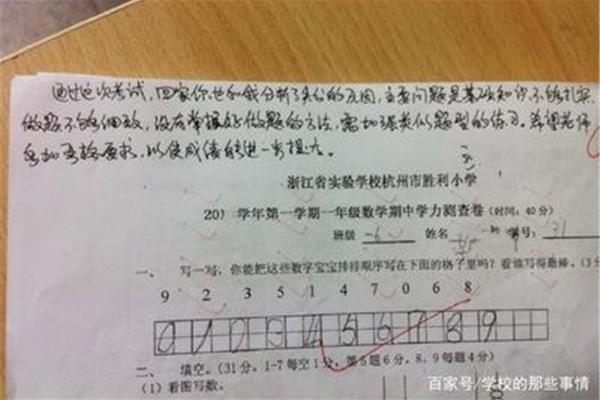 通过这次考试，回家你也和我分析了失分的原因，主要问题是基础知识不够扎实，
做题不够细致，没有掌握好做题的方法，需加强类似题型的练习。希望老师
严格要求，以使成绩能进一步提高。
浙江省实验学校杭州市胜利小学
201 学年第一学期一年级数学期中学力测查卷（时间：40分）
班级 一6 姓名 学号：31
一、 写一写：你能把这些数字宝宝排排顺序写在下面的格子里吗？看谁写得最棒。（3分
9 2 3 5 1 4 7 0 6 8
0 1 2 3 4 5 6 7 8 9
二、 填空。（31分，1-7每空1分，第5题6分，8、9每题4分）
（1）看图写数。
8
百家号/学校的那些事情